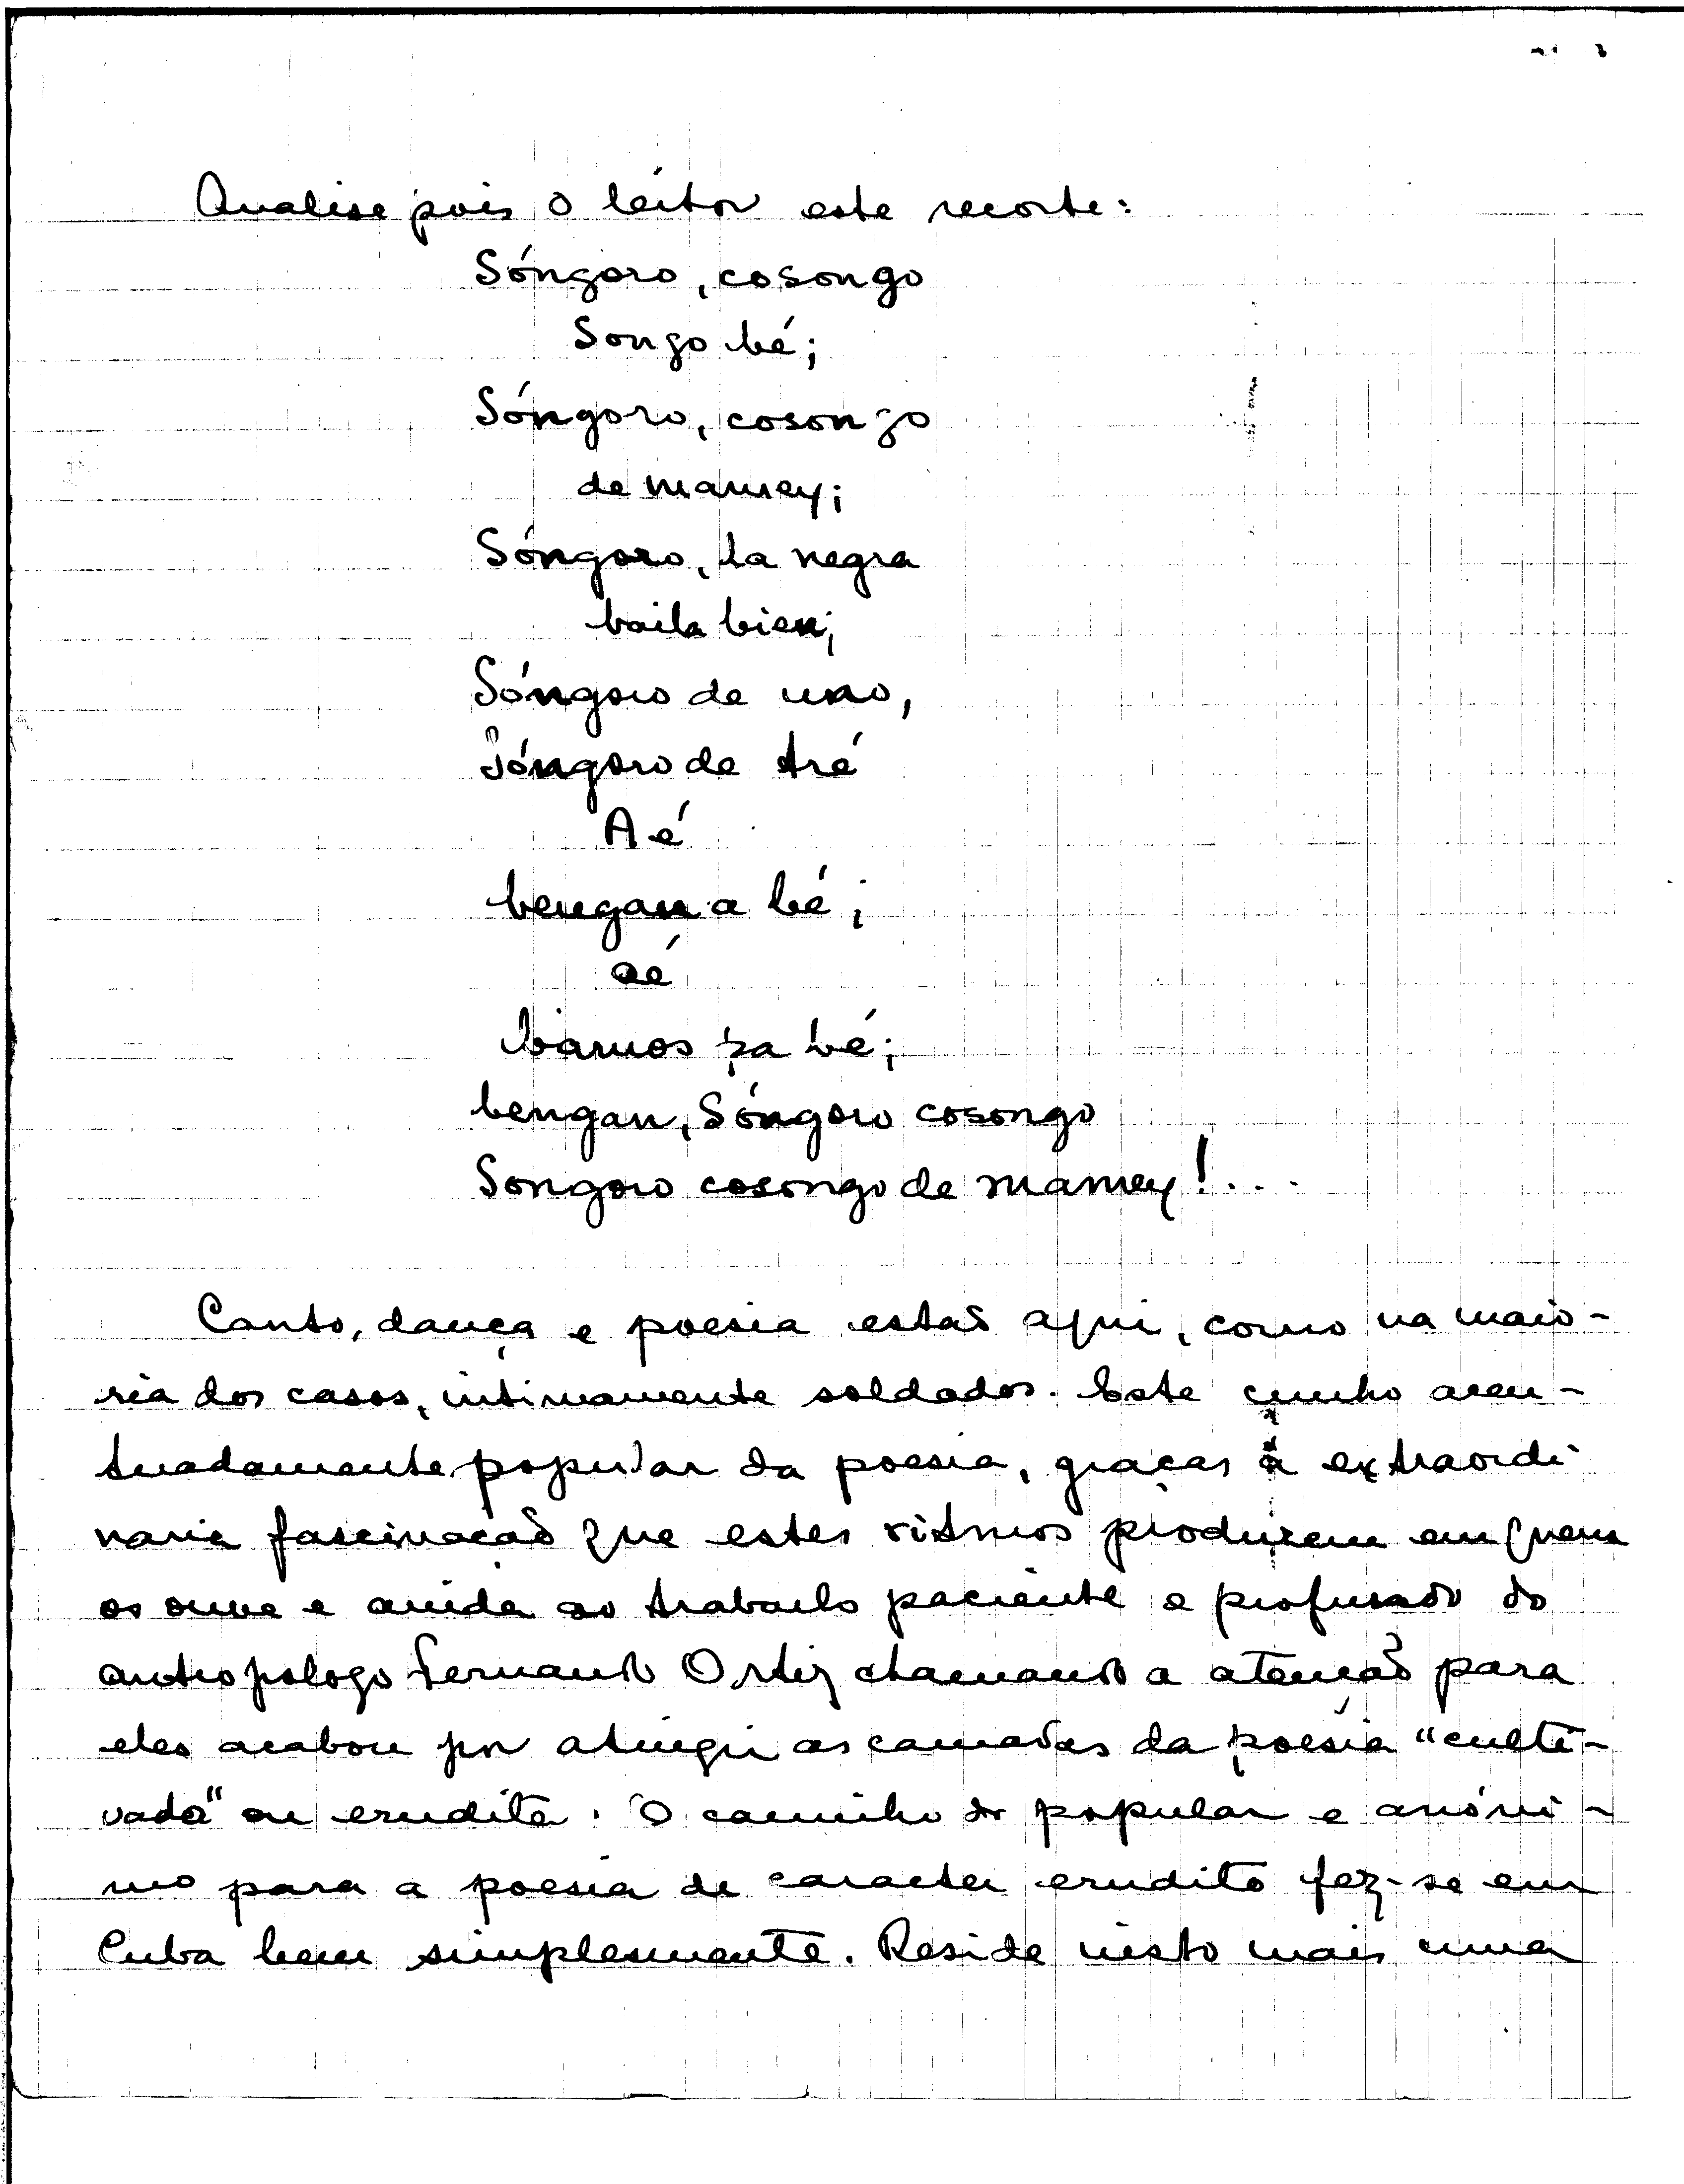 Analise pois o leitor este recorte:
Sóngoro, cosongo
Songo bé;
Sóngoro, cosongo
de mamey;
Sóngoro, la negra
baila bien;
Sóngoro de uno,
Sóngoro de tré
Aé
bengan a bé;
aé
bamos pa bé;
bengan, Sóngoro cosongo
Songoro cosongo de mamey!...
Canto, dança e poesia estaõ aqui, como na maio-
ria dos casos, intimamente soldados. Este cunho acen-
tuadamente popular da poesia, graças à extraordi-
naria fascinaçaõ que estes ritmos produzem em quem
os ouve e ainda ao trabalho paciente e profundo do
antropologo Fernando Ortiz chamando a atençaõ para
eles acabou por atingir as camadas da poesia "culti-
vada" ou erudita. O caminho do popular e anóni-
mo para a poesia de caracter erudito fez-se em
Cuba bem simplesmente. Reside nisto mais uma